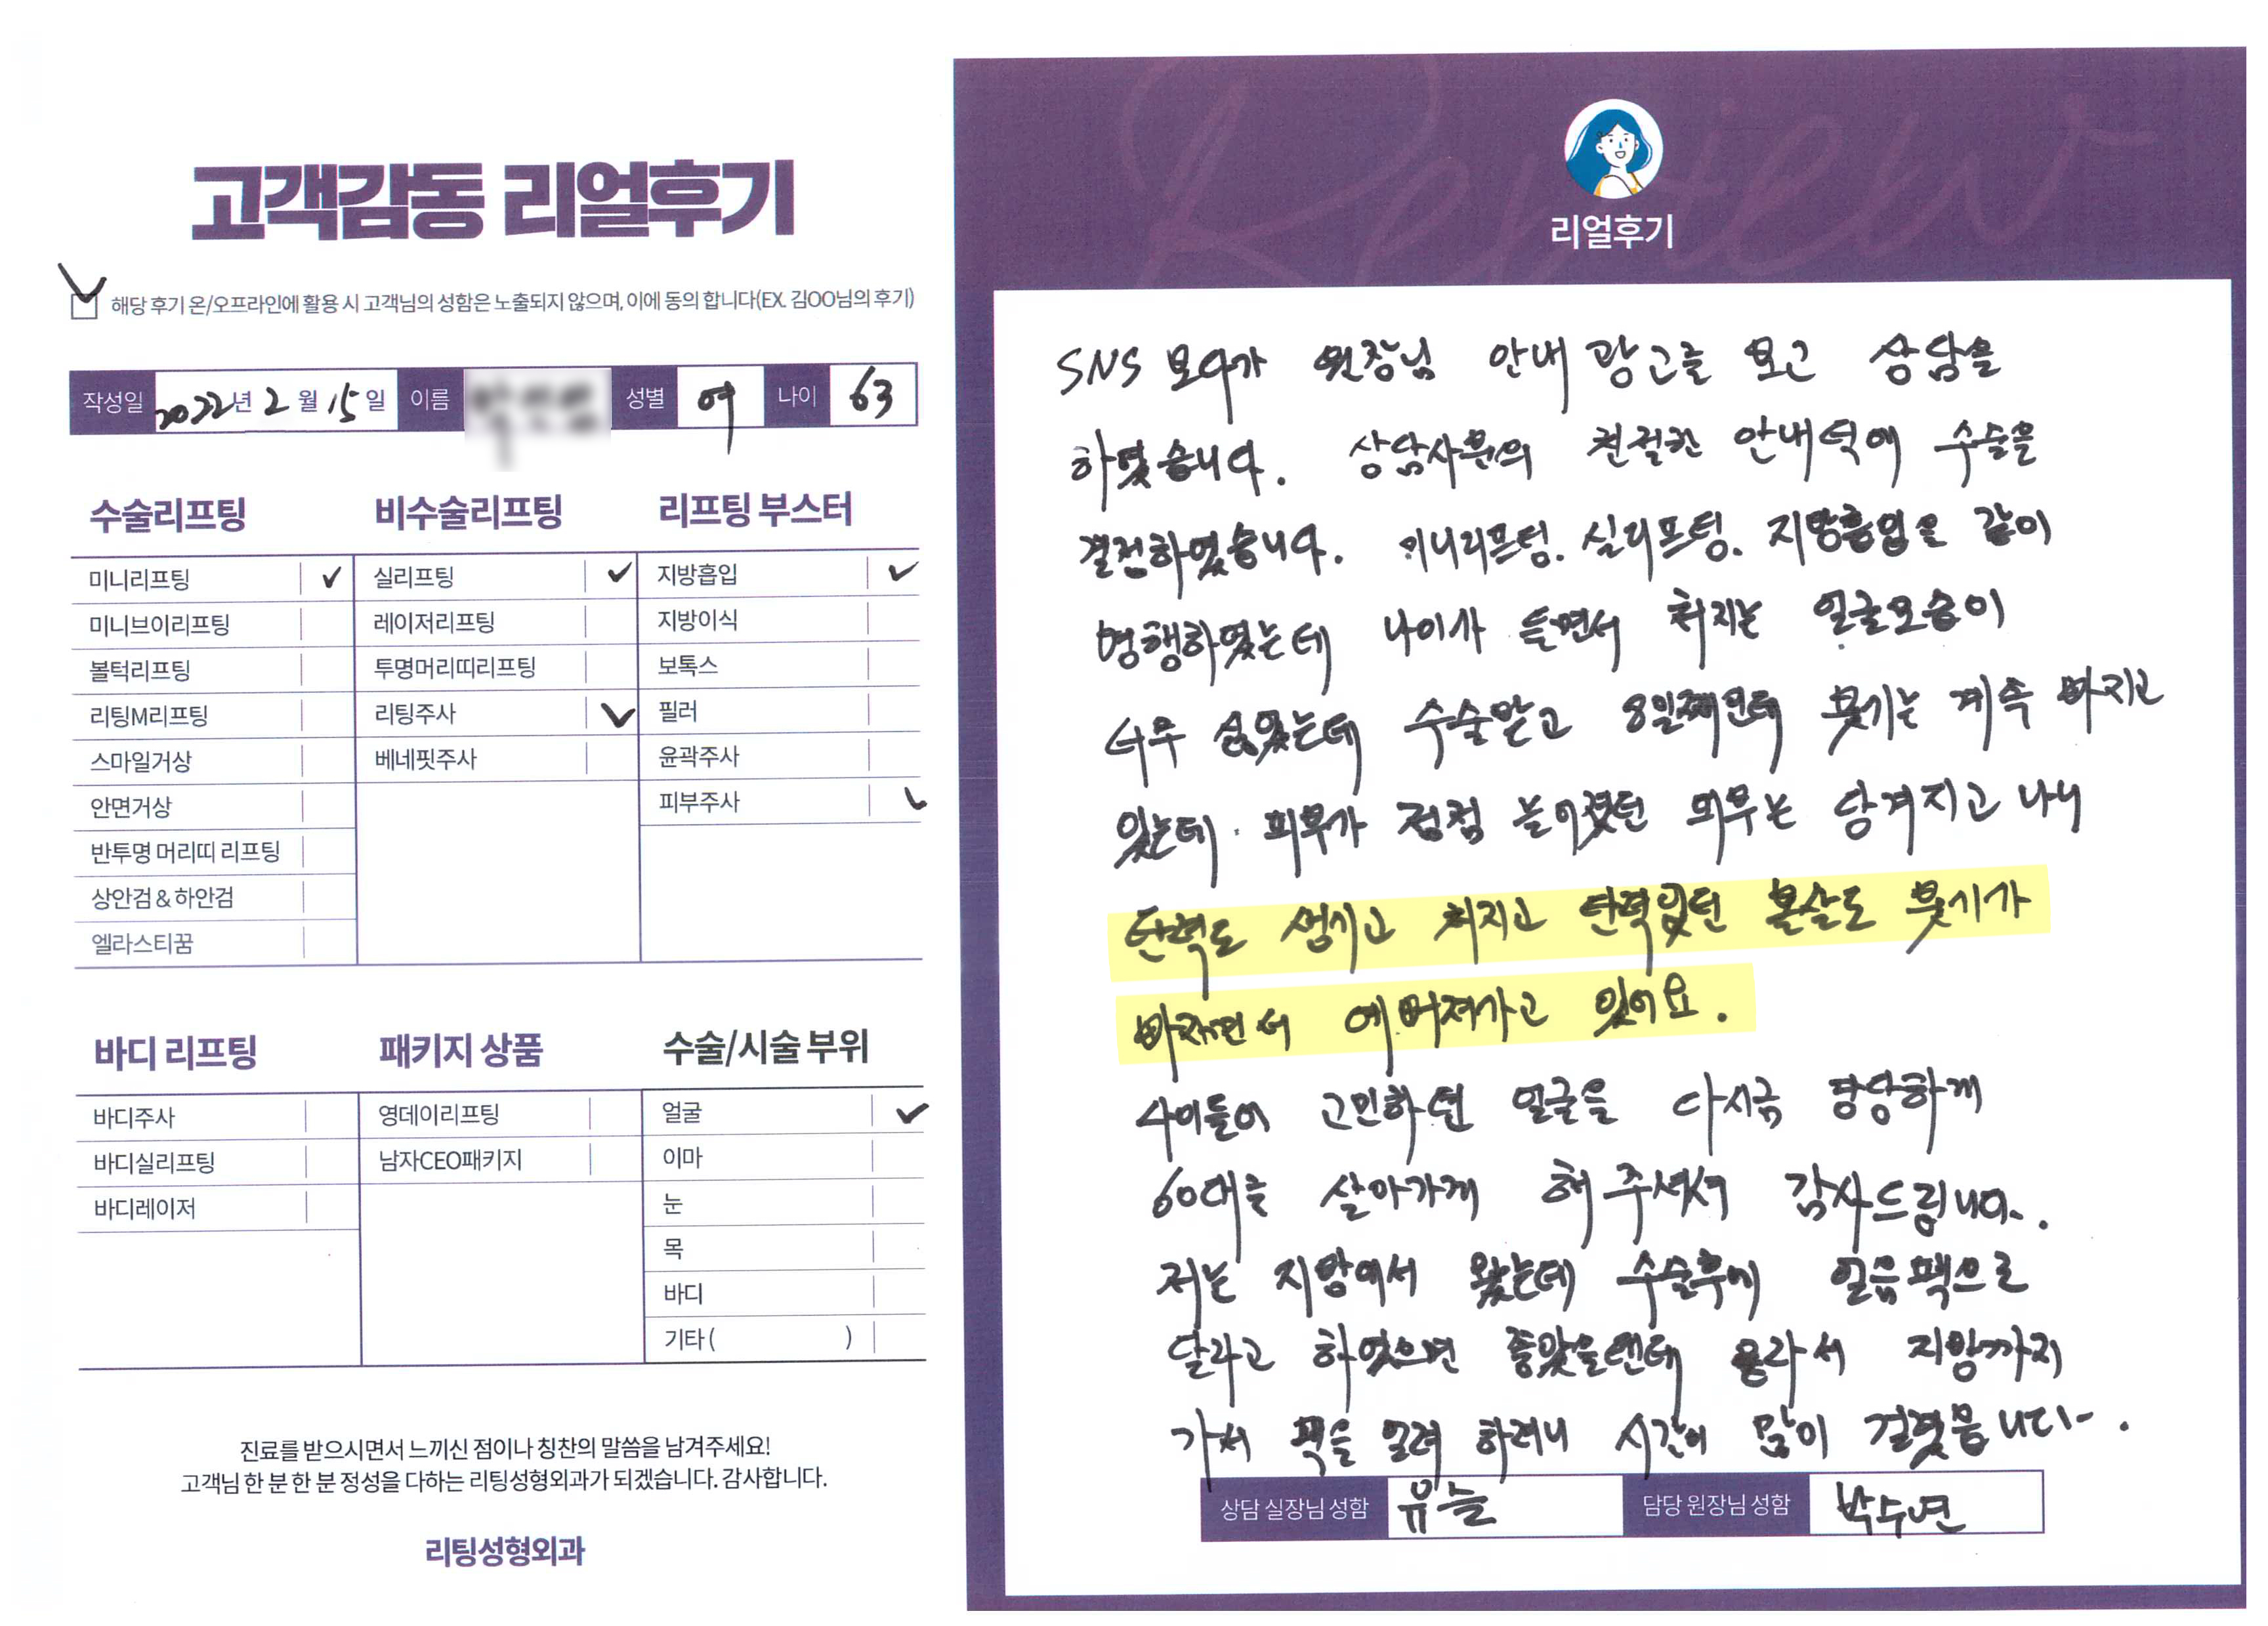 고객감동 리얼후기
해당 후기 온/오프라인에 활용 시 고객님의 성함은 노출되지 않으며, 이에 동의 합니다(EX. 김OO님의 후기)
작성일 2022년 2월 15일 이름 성별 여 나이 63
수술리프팅
미니리프팅 ✓
미니브이리프팅
볼턱리프팅
리팅M리프팅
스마일거상
안면거상
반투명 머리띠 리프팅
상안검 & 하안검
엘라스티꿈
비수술리프팅
실리프팅 ✓
레이저리프팅
투명머리띠리프팅
리팅주사 ✓
베네핏주사
리프팅 부스터
지방흡입 ✓
지방이식
보톡스
필러
윤곽주사
피부주사 ✓
바디 리프팅
바디주사
바디실리프팅
바디레이저
패키지 상품
영데이리프팅
남자CEO패키지
수술/시술 부위
얼굴 ✓
이마
눈
목
바디
기타 ( )
진료를 받으시면서 느끼신 점이나 칭찬의 말씀을 남겨주세요!
고객님 한 분 한 분 정성을 다하는 리팅성형외과가 되겠습니다. 감사합니다.
리팅성형외과
Review
리얼후기
SNS 보다가 원장님 안내 광고를 보고 상담을
하였습니다. 상담사분의 친절한 안내덕에 수술을
결전하였습니다. 미니리프팅. 실리프팅. 지방흡입을 같이
병행하였는데 나이가 들면서 처지는 얼굴모습이
너무 싫었는데 수술받고 8일째인데 붓기는 계속 빠지고
있는데. 피부가 점점 늘어졌던 피부는 당겨지고 나니
탄력도 생기고 처지고 탄력있던 볼살도 붓기가
빠지면서 예뻐져가고 있어요.
나이들어 고민하던 얼굴을 다시금 당당하게
60대를 살아가게 해 주셔서 감사드립니다.
저는 지방에서 왔는데 수술후에 얼음팩으로
달라고 하였으면 좋았을텐데 몰라서 지방까지
가서 팩을 얼려 하려니 시간이 많이 걸렸습니다.
상담 실장님 성함 유슬 담당 원장님 성함 박수연